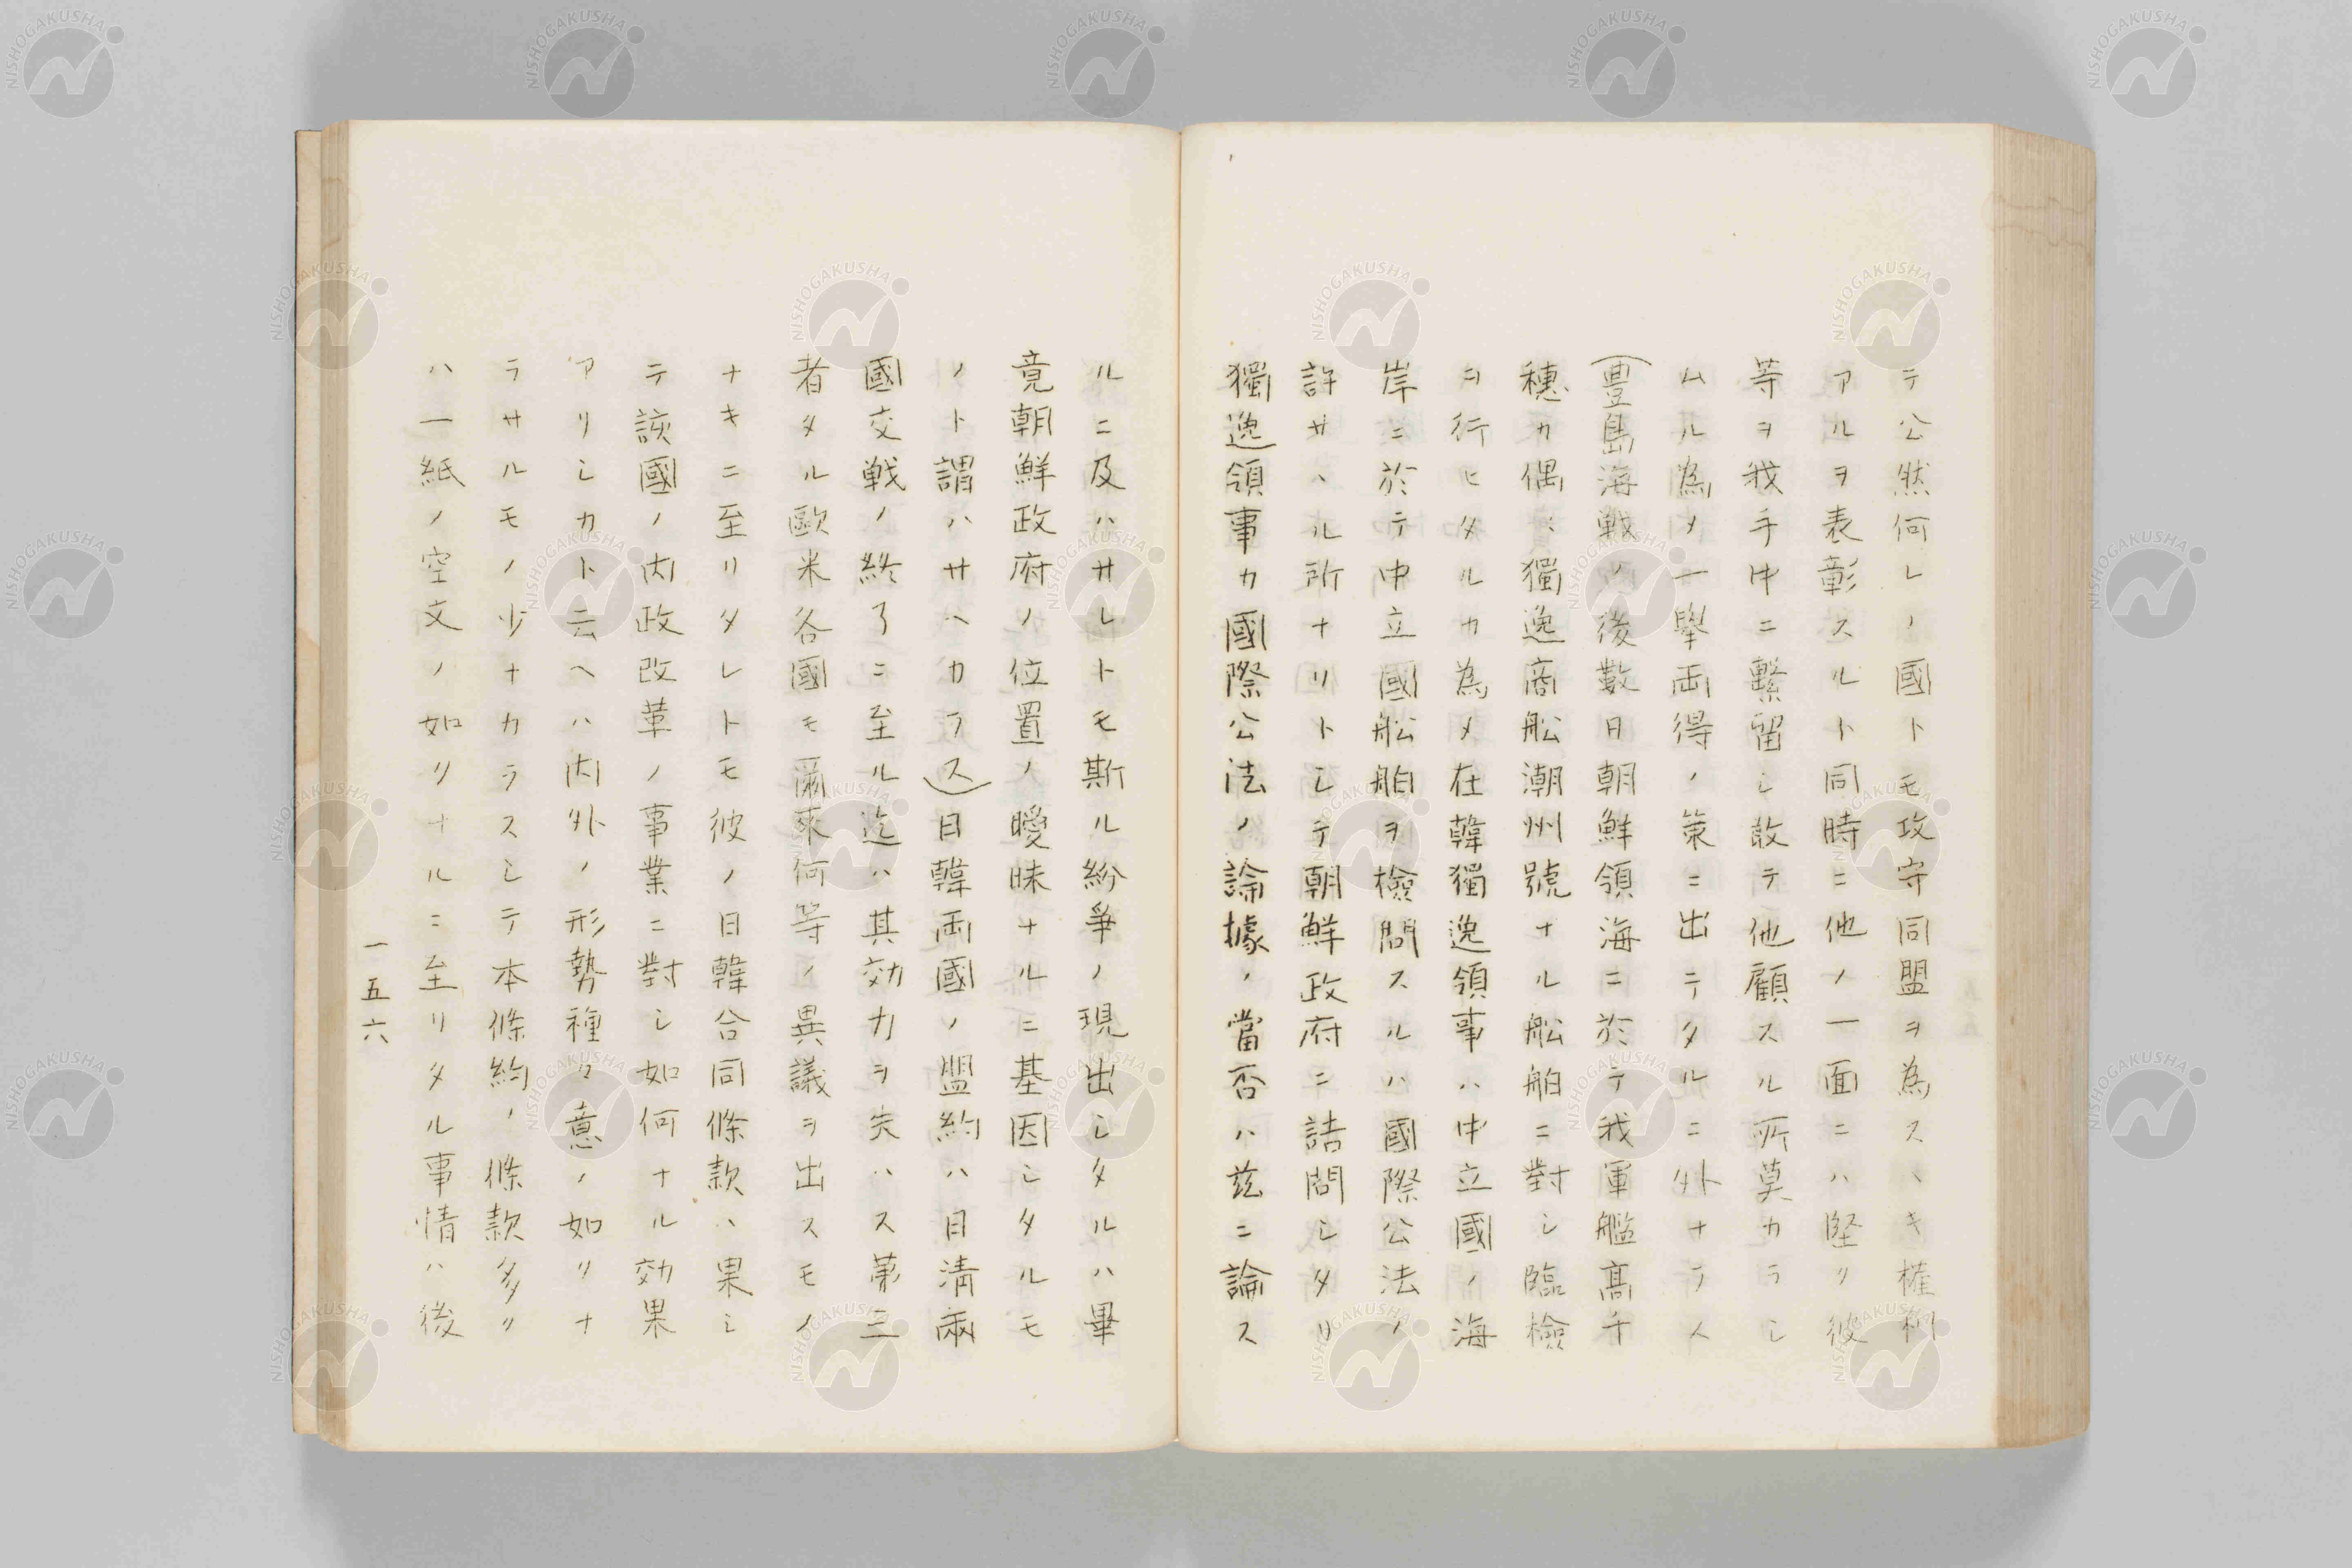 テ公然何レノ國トモ攻守同盟ヲ為スヘキ権利
アルヲ表彰スルト同時ニ他ノ一面ニハ堅リ彼
等ヲ我手中ニ繋留シ敢テ他顧スル所莫カラシ
ムル為メ一擧両得ノ策ニ出テタルニ外ナラス
(豊島海戦ノ後數日朝鮮領海ニ於テ我軍艦髙千
穂カ偶〻獨逸商舩潮州號ナル舩舶ニ對シ臨檢
ヲ行ヒタルカ為メ在韓獨逸領事ハ中立國ノ海
岸ニ於テ中立國舩舶ヲ檢問スルハ國際公法ノ
許サヽル所ナリトシテ朝鮮政府ニ詰問シタリ
獨逸領事カ國際公法ノ論據ノ當否ハ茲ニ論ス
ルニ及ハサレトモ斯ル紛爭ノ現出シタルハ畢
竟朝鮮政府ノ位置ノ曖昧ナルニ基因シタルモ
ノト謂ハサヘカラス)日韓両國ノ盟約ハ日清兩
國交戦ノ終了ニ至ル迄ハ其効力ヲ失ハス第三
者タル歐米各國モ爾來何等ノ異議ヲ出スモノ
ナキニ至リタレトモ彼ノ日韓合同條款ハ果シ
テ該國ノ内政改革ノ事業ニ對シ如何ナル効果
アリシカト云ヘハ内外ノ形勢種々意ノ如リナ
ラサルモノ少ナカラスシテ本條約ノ條款多リ
ハ一紙ノ空文ノ如リナルニ至リタル事情ハ後
一五六
NISHOGAKUSHA